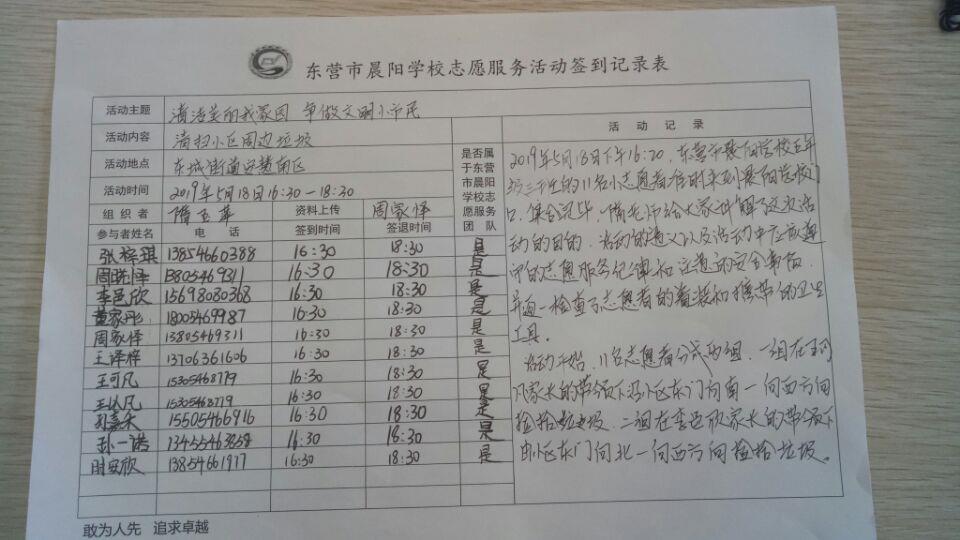 东营市晨阳学校志愿服务活动签到记录表
活动主题 清洁美丽我家园 争做文明小市民
活动内容 清扫小区周边垃圾
活动地点 东城街道安慧南区
活动时间 2019年5月18日16:30-18:30
组织者 隋玉华 资料上传 周家怿
参与者姓名 电话 签到时间 签退时间
是否属于东营市晨阳学校志愿服务团队
张梓琪 13854660388 16:30 18:30 是
周晓怿 13805469311 16:30 18:30 是
李邑欣 15698030368 16:30 18:30 是
董家彤 18005469987 16:30 18:30 是
周家怿 13805469311 16:30 18:30 是
王泽梓 13706361606 16:30 18:30 是
王可凡 15305468779 16:30 18:30 是
王以凡 15305468779 16:30 18:30 是
孙嘉禾 15505466916 16:30 18:30 是
孙一诺 16:30 18:30 是
时安欣 13854661917 16:30 18:30 是
活动记录
2019年5月18日下午16:20,东营市晨阳学校五年
级三班的11名小志愿者准时来到晨阳学校门
口,集合完毕,隋老师给大家讲解了这次活
动的目的、活动的意义以及活动中应该遵
守的志愿服务纪律和注意的安全事故,
并逐一检查了志愿者的着装和携带的卫生
工具。
活动开始,11名志愿者分成两组,一组在王可
凡家长的带领下沿小区东门向南一向西方向
捡拾垃圾,二组在李邑欣家长的带领下
由小区东门向北一向西方向捡拾垃圾。
敢为人先 追求卓越